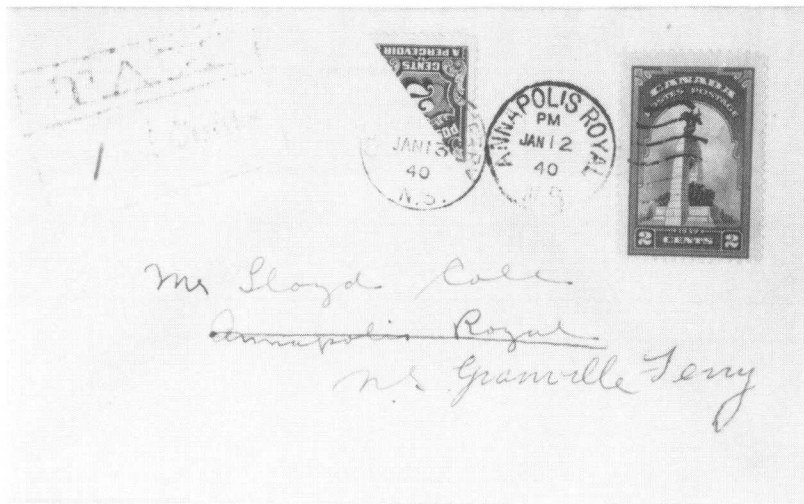 TAX
CENTS
A PERCEVOIR
2
JAN 13
40
N.S.
ANNAPOLIS ROYAL
PM
JAN 12
40
CANADA
POSTAGE
2 CENTS 2
Mr Lloyd Cole
Annapolis Royal
N.S. Granville Ferry